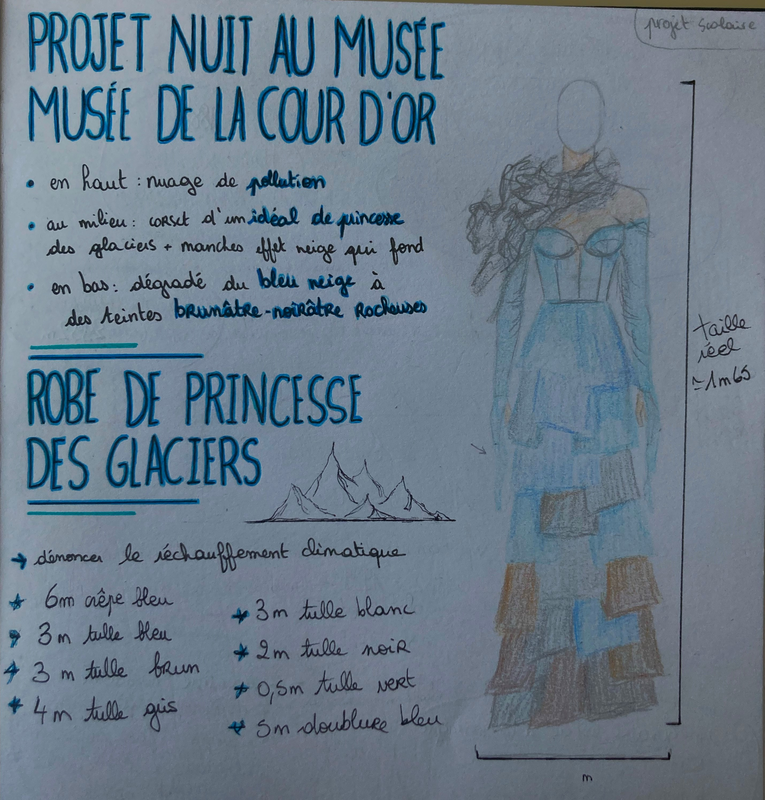 projet scolaire
PROJET NUIT AU MUSÉE
MUSÉE DE LA COUR D'OR
• en haut : nuage de pollution
• au milieu : corset d'un idéal de princesse
des glaciers + manches effet neige qui fond
• en bas : dégradé du bleu neige à
des teintes brunâtre-noirâtre Rocheuses
ROBE DE PRINCESSE
DES GLACIERS
→ dénoncer le réchauffement climatique
* 6m crêpe bleu
* 3m tulle bleu
* 3m tulle brun
* 4m tulle gris
* 3m tulle blanc
* 2m tulle noir
* 0,5m tulle vert
* 5m doublure bleu
taille
réel
≃ 1m65
m